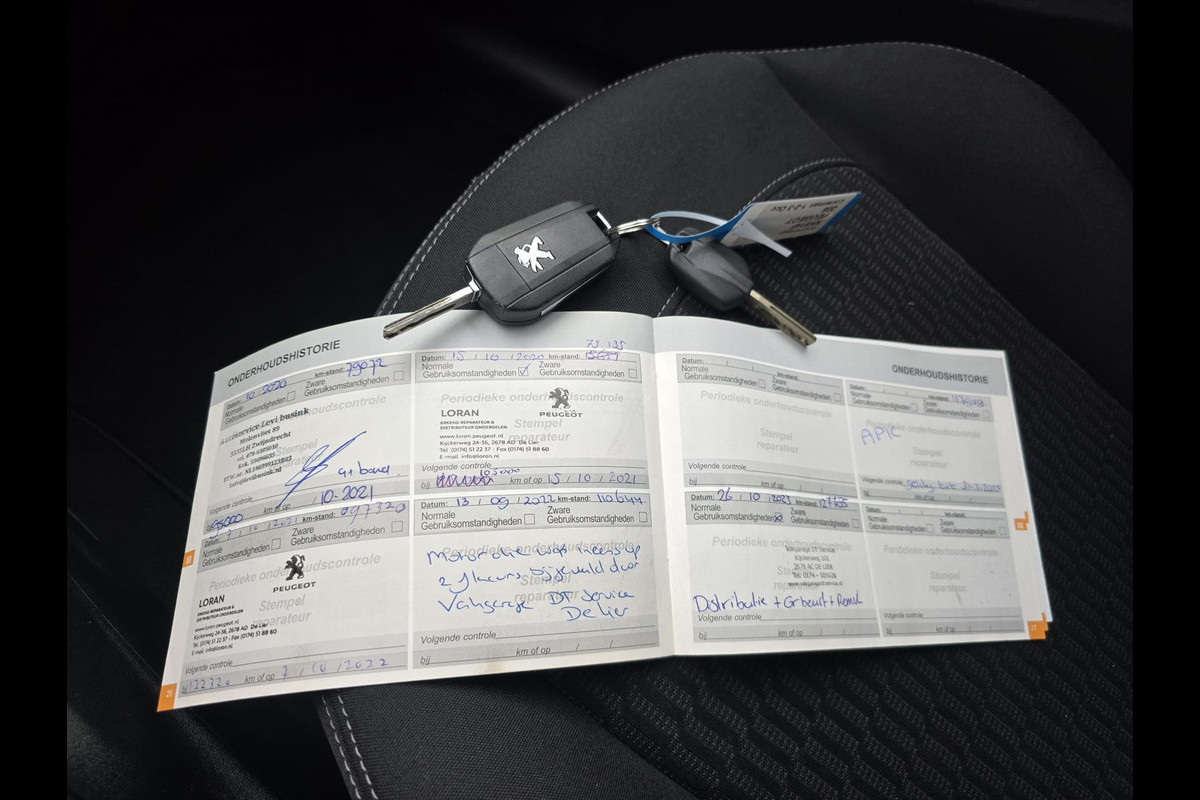 ONDERHOUDSHISTORIE
Datum: 10.2020 km-stand: 79072
Normale
Gebruiksomstandigheden
Zware
Gebruiksomstandigheden
Periodieke onderhoudscontrole
Autoservice Levi busink
Molenvliet 89
3335LH Zwijndrecht
Stempel
reparateur
Volgende controle
bij 95000 km of op / 10-2021
Datum: 15 / 10 / 2020 km-stand: 79.135
Normale
Gebruiksomstandigheden
Zware
Gebruiksomstandigheden
Periodieke onderhoudscontrole
LORAN
PEUGEOT
ERKEND REPARATEUR &
DISTRIBUTEUR ONDERDELEN
Stempel
reparateur
www.loran.peugeot.nl
Kijckerweg 24-36, 2678 AD De Lier
Tel. (0174) 51 22 37 - Fax (0174) 51 88 60
E-mail info@loran.nl
Volgende controle
bij 105000 km of op 15 / 10 / 2021
Datum: 7 / 10 / 2021 km-stand: 097320
Normale
Gebruiksomstandigheden
Zware
Gebruiksomstandigheden
Periodieke onderhoudscontrole
PEUGEOT
LORAN
ERKEND REPARATEUR &
DISTRIBUTEUR ONDERDELEN
Stempel
reparateur
Kijckerweg 24-36, 2678 AD De Lier
Tel. (0174) 51 22 37 - Fax (0174) 51 88 60
E-mail info@loran.nl
Volgende controle
bij km of op 7 / 10 / 2022
Datum: 13 / 09 / 2022 km-stand: 110644
Normale
Gebruiksomstandigheden
Zware
Gebruiksomstandigheden
Periodieke onderhoudscontrole
Stempel
reparateur
Motor olie
bijgevuld door
Vakgarage DT Service
De Lier
Volgende controle
bij km of op / /
26
ONDERHOUDSHISTORIE
Datum: / / km-stand:
Normale
Gebruiksomstandigheden
Zware
Gebruiksomstandigheden
Periodieke onderhoudscontrole
Stempel
reparateur
Volgende controle
bij km of op / /
Normale
Gebruiksomstandigheden
Zware
Gebruiksomstandigheden
Periodieke onderhoudscontrole
APK
Stempel
reparateur
Volgende controle
Datum: 26 / 10 / 2023 km-stand: 127755
Normale
Gebruiksomstandigheden
Zware
Gebruiksomstandigheden
Periodieke onderhoudscontrole
Vakgarage DT Service
Kijckerweg
2678 AC DE LIER
Distributie + Gr beurt + Remvl
bij km of op / /
Normale
Gebruiksomstandigheden
Zware
Gebruiksomstandigheden
Periodieke onderhoudscontrole
Stempel
reparateur
Volgende controle
bij km of op / /
27
PEUGEOT